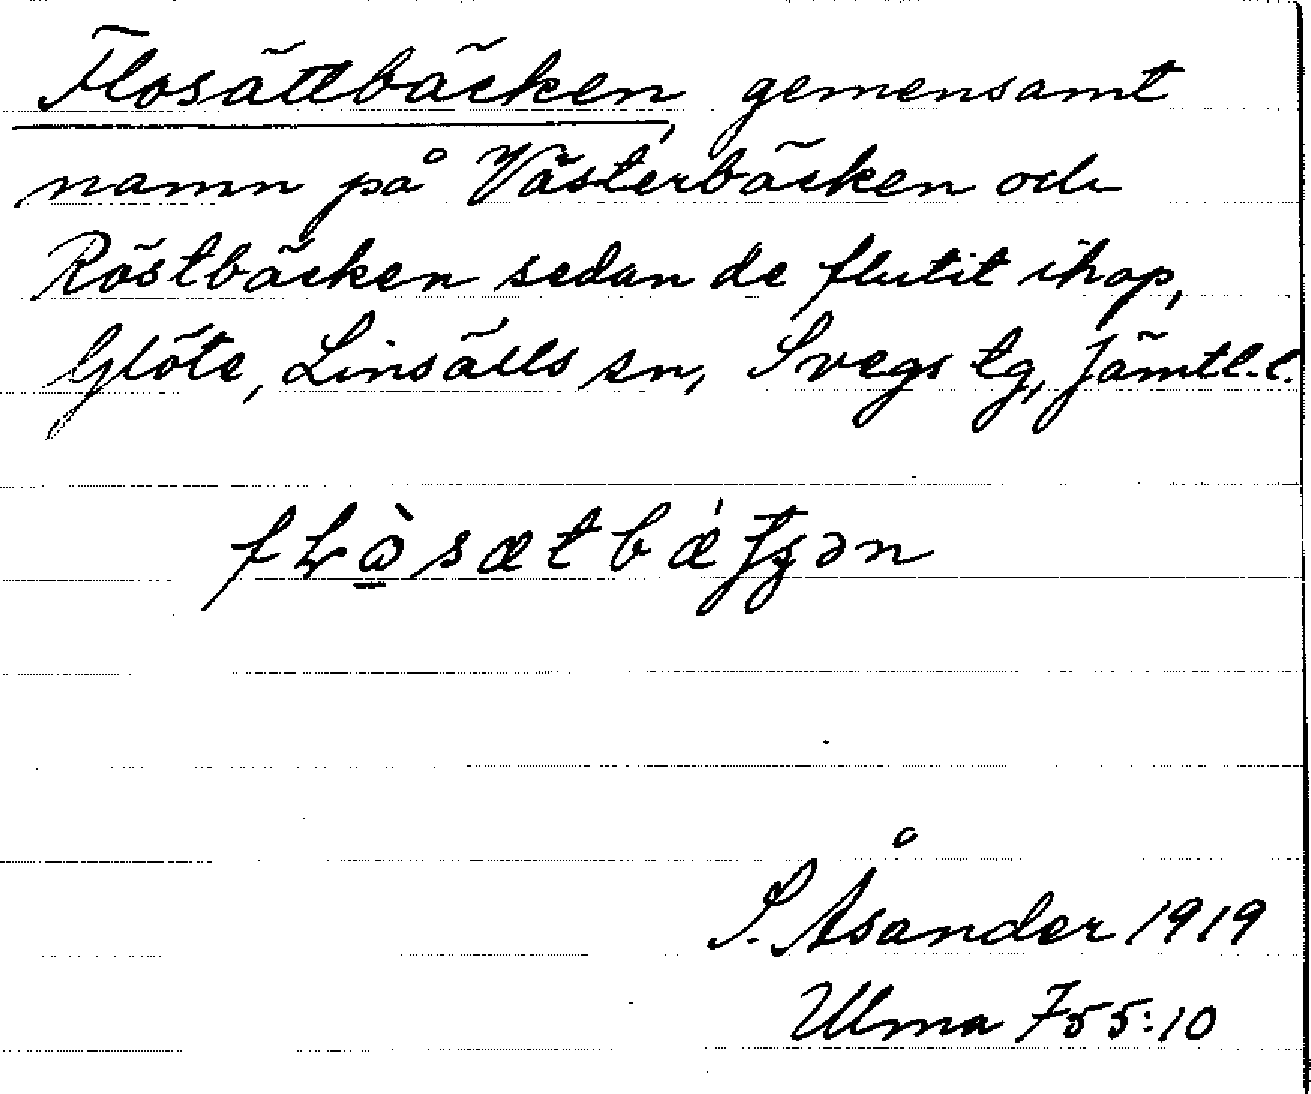 Flosättbäcken, gemensamt
namn på Västerbäcken och
Röstbäcken sedan de flutit ihop,
Glöte, Linsälls sn, Svegs tg, Jämtl. l.
S. Åsander 1919
Ulma 755:10